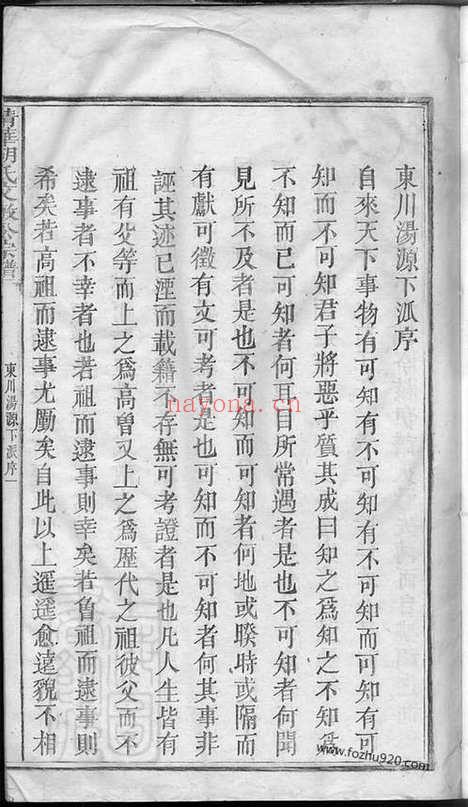 東川湯源下派序
自來天下事物有可知有不可知而可知有可
知而不可知君子將惡乎質其成曰知之爲知之不知爲
不知而已可知者何耳目所常遇者是也不可知者何聞
見所不及者是也不可知而可知者何地或暌時或隔而
有獻可徵有文可考者是也可知而不可知者何其事非
誣其迹已湮而載籍不存無可考證者是也凡人生皆有
祖有父等而上之爲高曽又上之爲歴代之祖彼父而不
逮事者不幸者也若祖而逮事則幸矣若曾祖而逮事則
希矣若高祖而逮事尤尠矣自此以上遥遥愈遠貌不相
清華胡氏文敏公宗譜
東川湯源下派序
一
nayona.cn
www.fozhu920.com